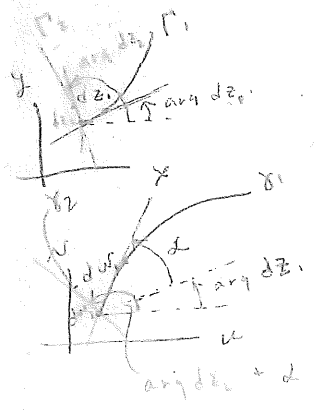 Γ₂ arg dz₂ Γ₁
y
dz₁ arg dz₁
γ₂ γ γ₁
v
α arg dz₁
u
arg dz₂ + α